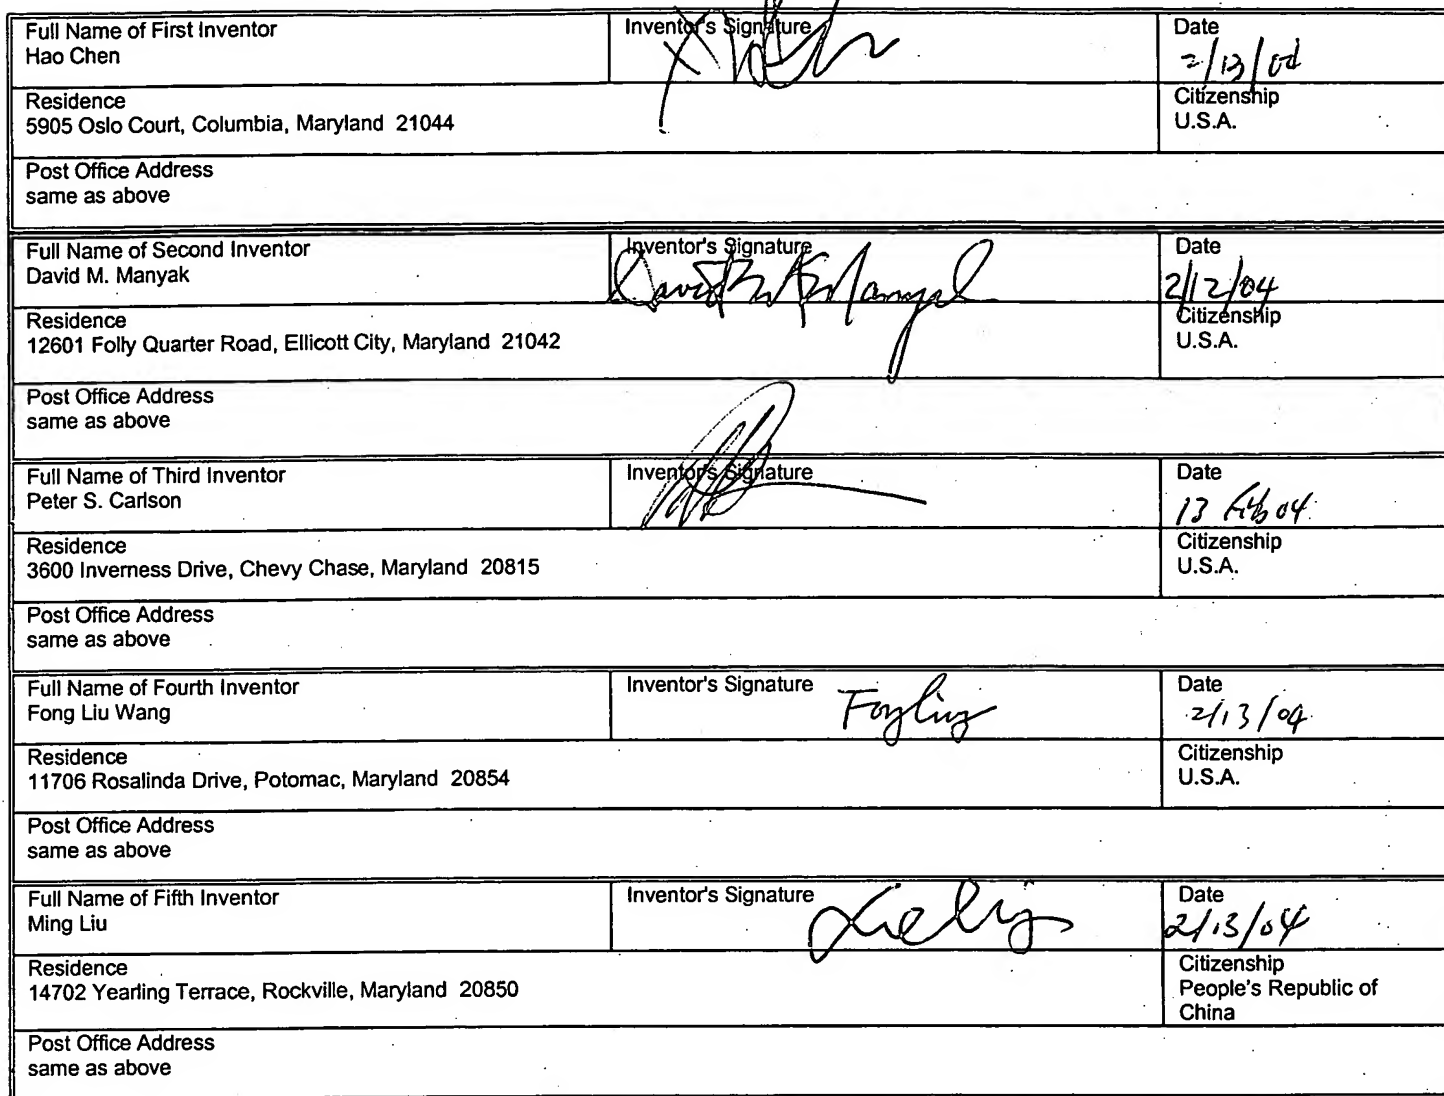 Full Name of First Inventor
Hao Chen
Inventor's Signature
Date
2/13/04
Residence
5905 Oslo Court, Columbia, Maryland 21044
Citizenship
U.S.A.
Post Office Address
same as above
Full Name of Second Inventor
David M. Manyak
Inventor's Signature
David M. Manyak
Date
2/12/04
Residence
12601 Folly Quarter Road, Ellicott City, Maryland 21042
Citizenship
U.S.A.
Post Office Address
same as above
Full Name of Third Inventor
Peter S. Carlson
Inventor's Signature
Date
13 Feb 04
Residence
3600 Inverness Drive, Chevy Chase, Maryland 20815
Citizenship
U.S.A.
Post Office Address
same as above
Full Name of Fourth Inventor
Fong Liu Wang
Inventor's Signature
Date
2/13/04
Residence
11706 Rosalinda Drive, Potomac, Maryland 20854
Citizenship
U.S.A.
Post Office Address
same as above
Full Name of Fifth Inventor
Ming Liu
Inventor's Signature
Date
2/13/04
Residence
14702 Yearling Terrace, Rockville, Maryland 20850
Citizenship
People's Republic of
China
Post Office Address
same as above